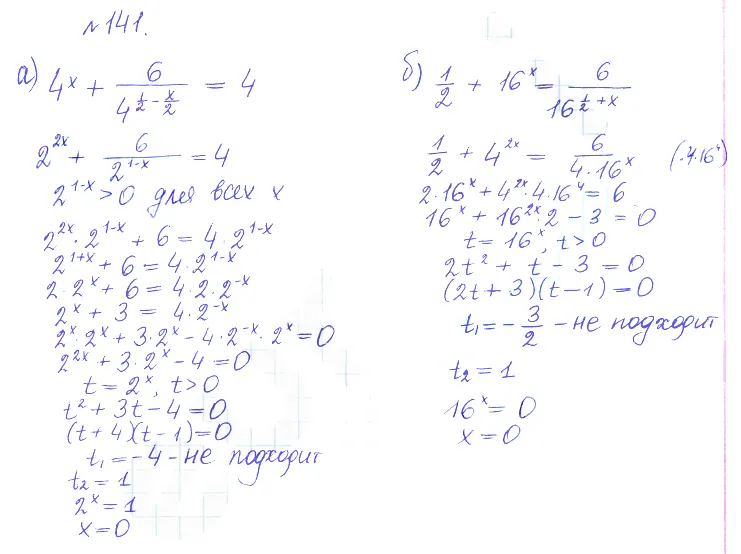 №141.
а) 4^x + 6/4^(1/2 - x/2) = 4
2^(2x) + 6/2^(1-x) = 4
2^(1-x) > 0 для всех x
2^(2x) · 2^(1-x) + 6 = 4 · 2^(1-x)
2^(1+x) + 6 = 4 · 2^(1-x)
2 · 2^x + 6 = 4 · 2 · 2^(-x)
2^x + 3 = 4 · 2^(-x)
2^x · 2^x + 3 · 2^x - 4 · 2^(-x) · 2^x = 0
2^(2x) + 3 · 2^x - 4 = 0
t = 2^x, t > 0
t² + 3t - 4 = 0
(t + 4)(t - 1) = 0
t₁ = -4 - не подходит
t₂ = 1
2^x = 1
x = 0
б) 1/2 + 16^x = 6/16^(1/2 + x)
1/2 + 4^(2x) = 6/(4 · 16^x) (·4·16^4)
2 · 16^x + 4^(2x) · 4 · 16^4 = 6
16^x + 16^(2x) · 2 - 3 = 0
t = 16^x, t > 0
2t² + t - 3 = 0
(2t + 3)(t - 1) = 0
t₁ = -3/2 - не подходит
t₂ = 1
16^x = 0
x = 0